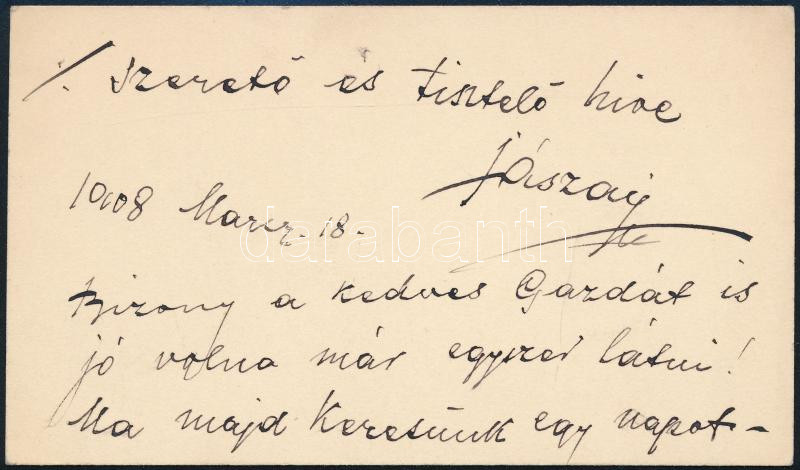 ./. szerető és tisztelő hive
Jászay
1908 Marcz. 18.-
Bizony a kedves Gazdát is
jó volna már egyszer látni!
Ma majd keresünk egy napot -
darabanth